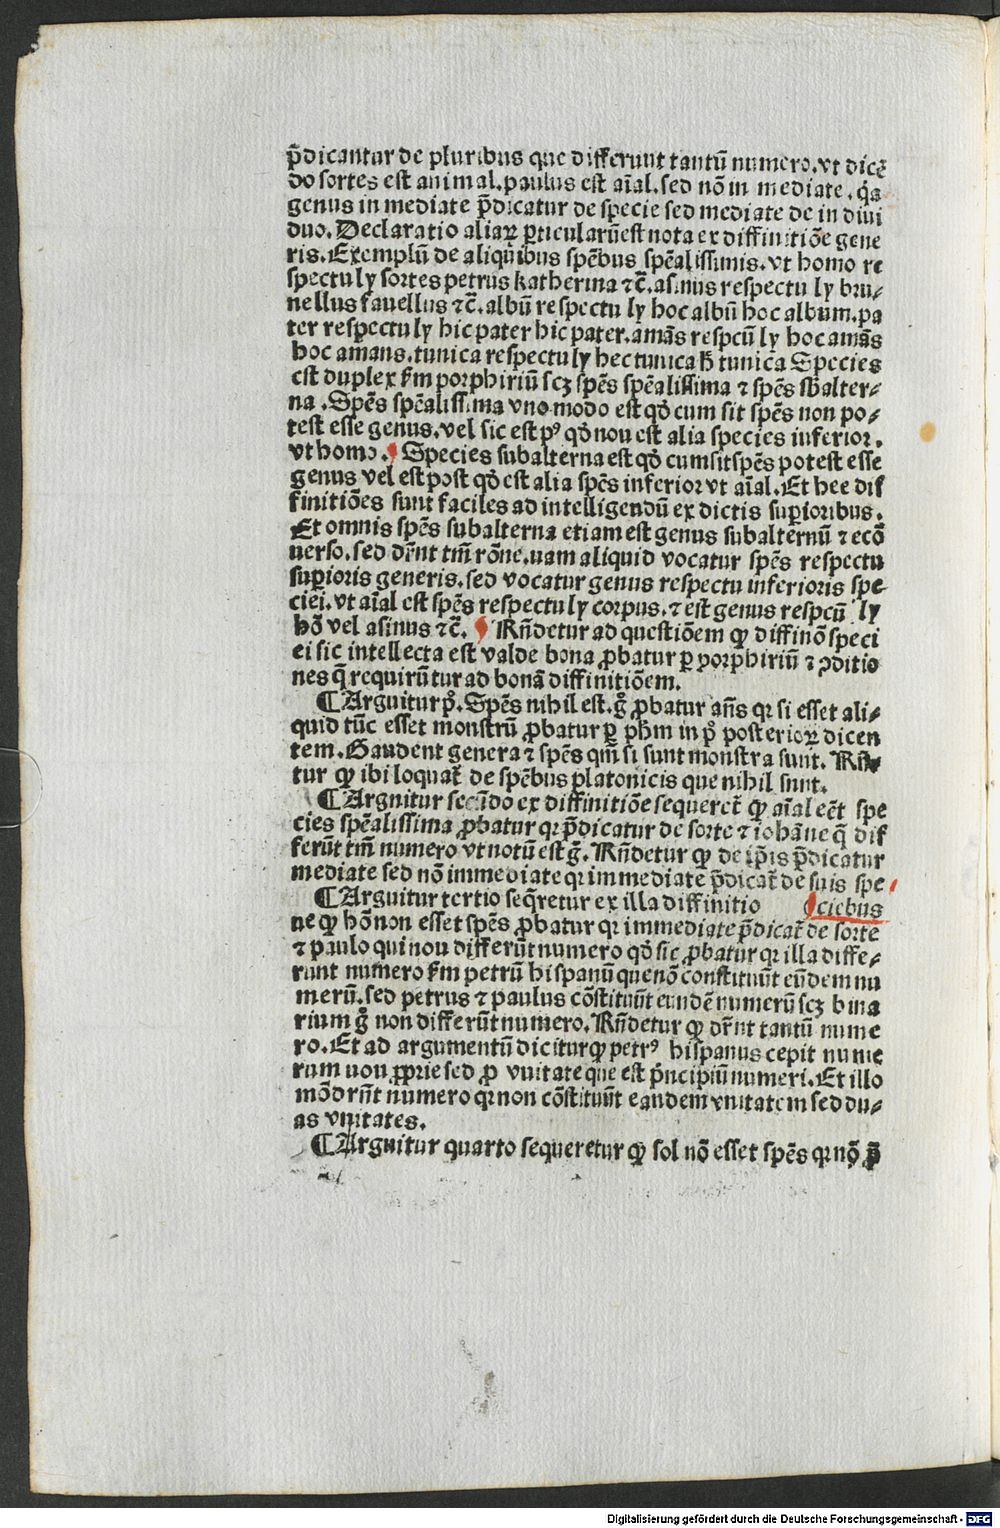 p̄dicantur de pluribus que differunt tantū numero.vt dicē
do sortes est animal.paulus est aīal.sed nō in mediate.q̄a
genus in mediate p̄dicatur de specie sed mediate de in diui
duo. Declaratio aliaꝝ ꝑticularū est nota ex diffinitiōe gene
ris. Exemplū de aliquibus spēbus spēalissimis.vt homo re
spectu ly sortes petrus katherina ⁊c̄.asinus respectu ly bru⸗
nellus fauellus ⁊c̄.albū respectu ly hoc albū hoc album.pa
ter respectu ly hic pater hic pater.amās respcū ly hoc amās
hoc amans.tunica respectu ly hec tunica h̄ tunica Species
est duplex scꝫ spēs spēalissima ⁊ spēs sb̄alter⸗
na. Spēs spēalissima vno modo est qḋ cum sit spēs non po⸗
test esse genus.vel sic est pꝰ qḋ nou est alia species inferior.
vt homo. Species subalterna est qḋ cum sit spēs potest esse
genus vel est post qḋ est alia spēs inferior vt aīal. Et hee dif
finitiōes sunt faciles ad intelligendū ex dictis suꝑioribus.
Et omnis spēs subalterna etiam est genus subalternū ⁊ ecō
uerso.sed dr̄nt tm̄ rōne.nam aliquid vocatur spēs respectu
suꝑioris generis.sed vocatur genus respectu inferioris spe
ciei.vt aīal est spēs respectu ly corpus.⁊ est genus respcū ly
hō vel asinus ⁊c̄. Rn̄detur ad questiōem ꝙ diffinō speci
ei sic intellecta est valde bona ꝓbatur ꝑ porphiriū ⁊ ꝯditio
nes q̄ requirūtur ad bonā diffinitiōem.
¶ Arguitur pͦ. Spēs nihil est.gͦ ꝓbatur an̄s qꝛ si esset ali⸗
quid tūc esset monstrū ꝓbatur ꝑ ph̄m in pͦ posterioꝝ dicen
tem. Gaudent genera ⁊ spēs qm̄ si sunt monstra sunt. Rn̄⸗
tur ꝙ ibi loquat̄ de spēbus platonicis que nihil sunt.
¶ Arguitur secūdo ex diffinitiōe sequeret̄ ꝙ aīal eēt spe
cies spēalissima ꝓbatur qꝛ p̄dicatur de sorte ⁊ iohāne q̄ dif
ferūt tm̄ numero vt notū est ḡ. Rn̄detur ꝙ de ip̄is p̄dicatur
mediate sed nō immediate qꝛ immediate p̄dicat̄ de suis spe
¶ Arguitur tertio seq̄retur ex illa diffinitio (ciebus
ne ꝙ hō non esset spēs ꝓbatur qꝛ immediate p̄dicat̄ de sorte
⁊ paulo qui nou differūt numero qḋ sic ꝓbatur qꝛ illa diffe⸗
runt numero fm̄ petrū hispanū que nō constituūt eūdem nu
merū.sed petrus ⁊ paulus cōstituūt eundē numerū scꝫ bina
rium gͦ non differūt numero. Rn̄detur ꝙ dr̄nt tantū nume
ro. Et ad argumentū dicitur ꝙ petrꝰ hispanus cepit nume
rum uon ꝓprie sed ꝓ vnitate que est p̄ncipiū numeri. Et illo
mōdrn̄t numero qꝛ non cōstituūt eandem vnitatem sed du⸗
as vnitates.
¶ Arguitur quarto sequeretur ꝙ sol nō esset spēs qꝛ nō p̄
Digitalisierung gefördert durch die Deutsche Forschungsgemeinschaft - DFG